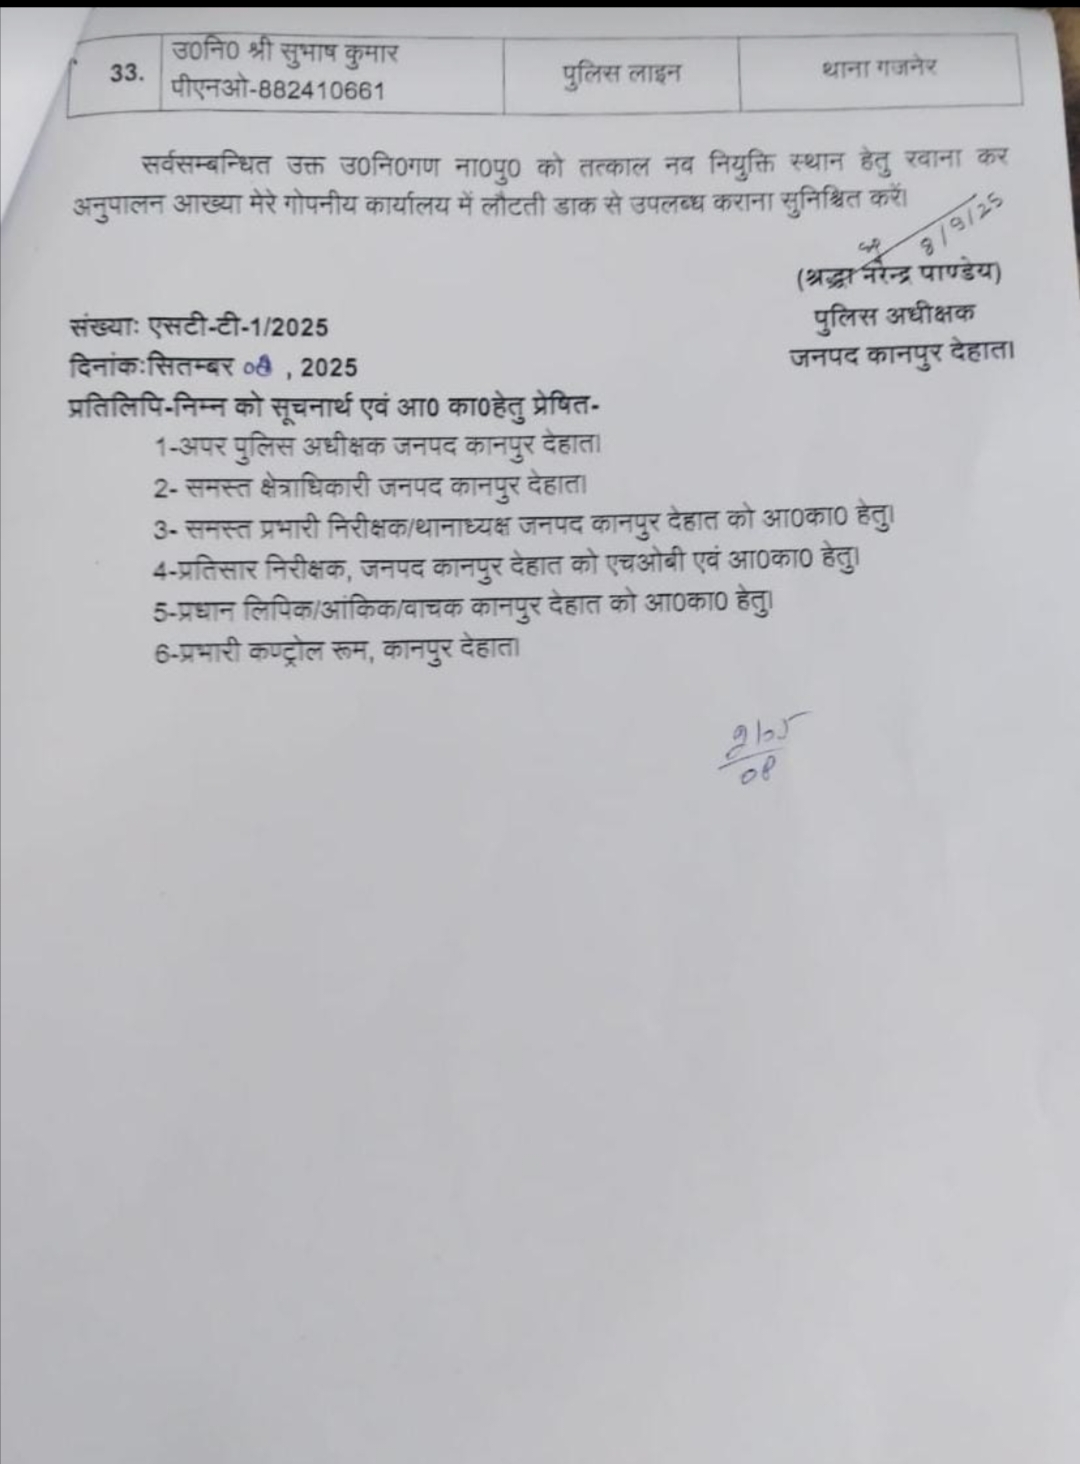 33. उ0नि0 श्री सुभाष कुमार पुलिस लाइन थाना गजनेर
पीएनओ-882410661
सर्वसम्बन्धित उक्त उ0नि0गण ना0पु0 को तत्काल नव नियुक्ति स्थान हेतु रवाना कर
अनुपालन आख्या मेरे गोपनीय कार्यालय में लौटती डाक से उपलब्ध कराना सुनिश्चित करें।
8/9/25
(श्रद्धा नरेन्द्र पाण्डेय)
पुलिस अधीक्षक
जनपद कानपुर देहात।
संख्याः एसटी-टी-1/2025
दिनांक:सितम्बर 08 , 2025
प्रतिलिपि-निम्न को सूचनार्थ एवं आ0 का0हेतु प्रेषित-
1-अपर पुलिस अधीक्षक जनपद कानपुर देहात।
2- समस्त क्षेत्राधिकारी जनपद कानपुर देहात।
3- समस्त प्रभारी निरीक्षक/थानाध्यक्ष जनपद कानपुर देहात को आ0का0 हेतु।
4-प्रतिसार निरीक्षक, जनपद कानपुर देहात को एचओबी एवं आ0का0 हेतु।
5-प्रधान लिपिक/आंकिक/वाचक कानपुर देहात को आ0का0 हेतु।
6-प्रभारी कण्ट्रोल रूम, कानपुर देहात।